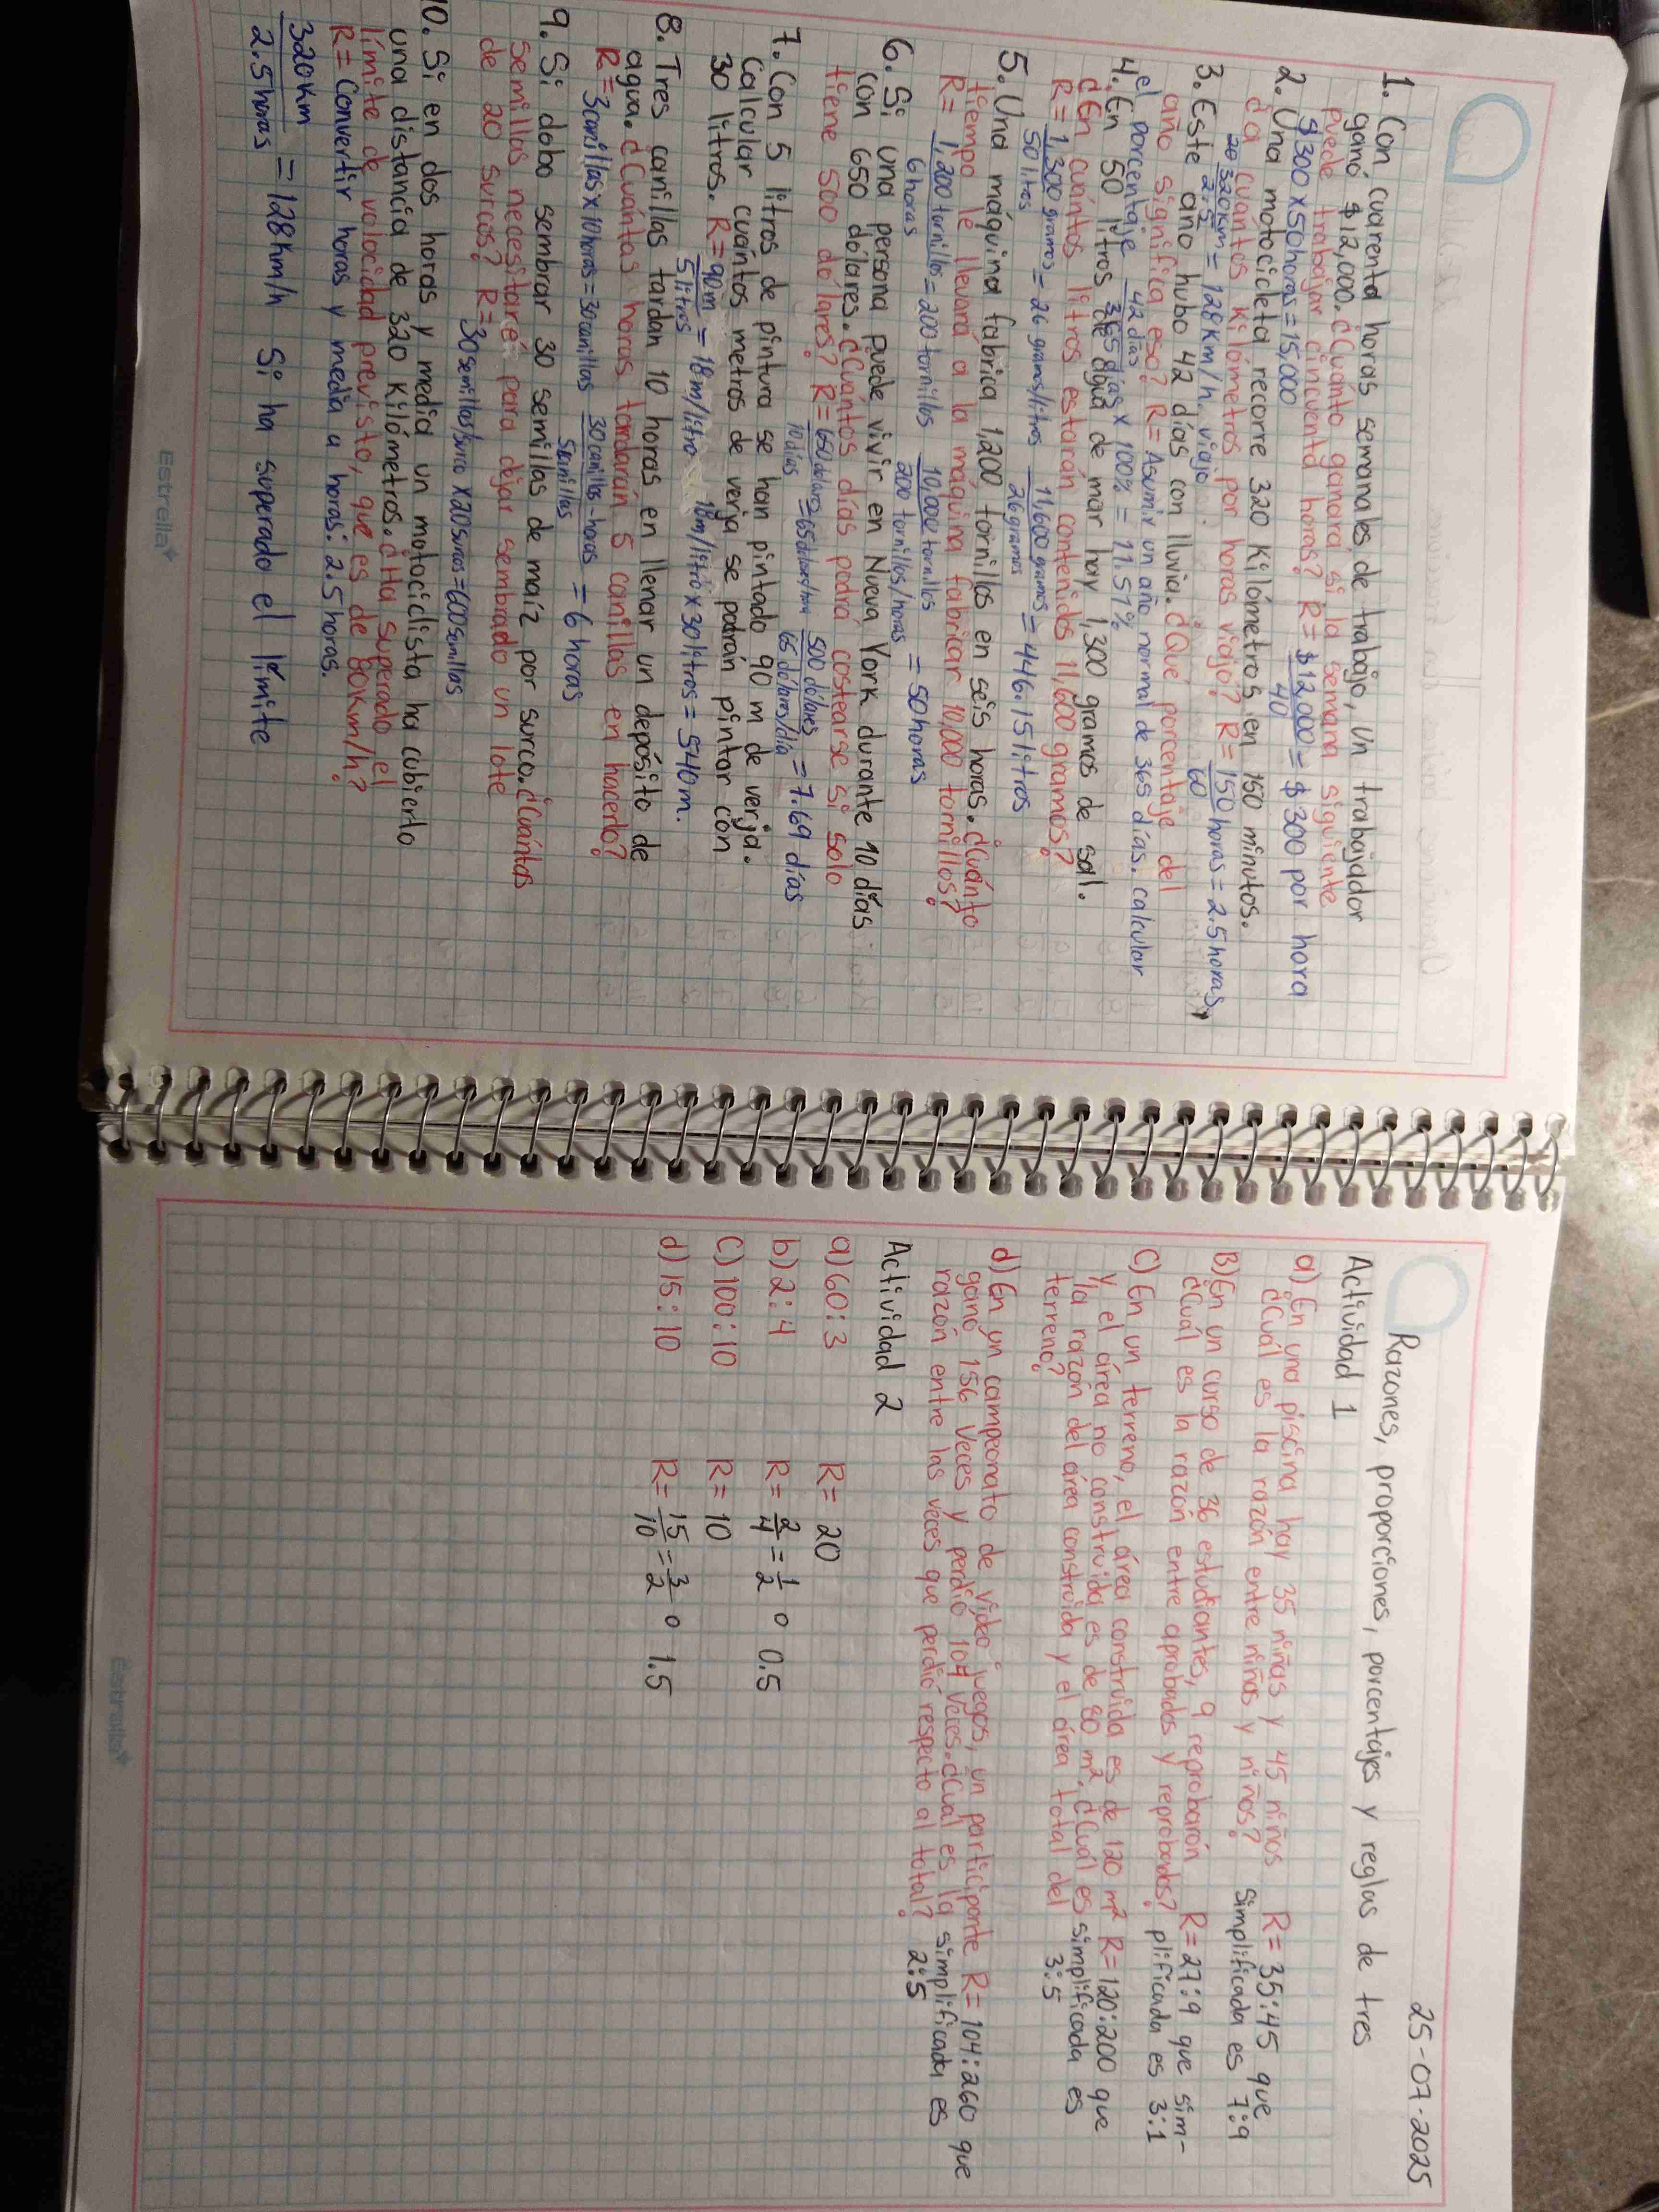 1. Con cuarenta horas semanales de trabajo, Un trabajador
ganó $12,000. ¿Cuánto ganará si la semana siguiente
puede trabajar cincuenta horas? R= $12,000/40 = $300 por hora
$300 x 50horas = 15,000
2. Una motocicleta recorre 320 Kilómetros en 150 minutos.
¿a cuántos Kilómetros por horas viajo? R= 150/60 horas = 2.5 horas,
320km/2.5 = 128 Km/h viajo.
3. Este año hubo 42 días con lluvia. ¿Qué porcentaje del
año significa eso? R= Asumir un año normal de 365 días. calcular
el porcentaje 42 días/365 días x 100% = 11.51%
4. En 50 litros de agua de mar hay 1,300 gramos de sal.
¿En cuántos litros estarán contenidos 11,600 gramos?
R= 1,300 gramos/50 litros = 26 gramos/litros 11,600 gramos/26 gramos = 446.15 litros
5. Una máquina fabrica 1,200 tornillos en seis horas. ¿Cuánto
tiempo le llevará a la máquina fabricar 10,000 tornillos?
R= 1,200 tornillos/6 horas = 200 tornillos 10,000 tornillos/200 tornillos/horas = 50 horas
6. Si una persona puede vivir en Nueva York durante 10 días
con 650 dólares. ¿Cuántos días podrá costearse si solo
tiene 500 dólares? R= 650 dolares/10 días = 65 dolares/hora 500 dólares/65 dólares/día = 7.69 días
7. Con 5 litros de pintura se han pintado 90 m de verja.
Calcular cuántos metros de verja se podrán pintar con
30 litros. R= 90m/5 litros = 18 m/litro 18m/litro x 30 litros = 540 m.
8. Tres canillas tardan 10 horas en llenar un depósito de
agua. ¿Cuántas horas tardarán 5 canillas en hacerlo?
R= 3canillas x 10 horas = 30 canillas 30 canillas-horas/5 canillas = 6 horas
9. Si debo sembrar 30 semillas de maíz por surco. ¿Cuántas
semillas necesitaré para dejar sembrado un lote
de 20 surcos? R= 30 semillas/surco x 20 surcos = 600 semillas
10. Si en dos horas y media un motociclista ha cubierto
una distancia de 320 Kilómetros. ¿Ha superado el
límite de velocidad previsto, que es de 80Km/h?
R= Convertir horas y media a horas: 2.5 horas.
320km/2.5 horas = 128 Km/h Si ha superado el límite
Estrella
25-07-2025
Razones, proporciones, porcentajes y reglas de tres
Actividad 1
a) En una piscina hay 35 niñas y 45 niños R= 35:45 que
¿Cuál es la razón entre niñas y niños? Simplificada es 7:9
B) En un curso de 36 estudiantes, 9 reprobarón R= 27:9 que sim-
¿Cuál es la razón entre aprobados y reprobados? plificada es 3:1
C) En un terreno, el área construida es de 120 m² R= 120:200 que
y el área no construida es de 80 m². ¿Cuál es simplificada es
la razón del área construida y el área total del 3:5
terreno?
d) En un campeonato de video juegos, un participante R= 104:260 que
ganó 156 Veces y perdió 104 Veces. ¿Cual es la simplificada es
razón entre las veces que perdió respecto al total? 2:5
Actividad 2
a) 60:3 R= 20
b) 2:4 R= 2/4 = 1/2 o 0.5
C) 100:10 R= 10
d) 15:10 R= 15/10 = 3/2 o 1.5
Estrella